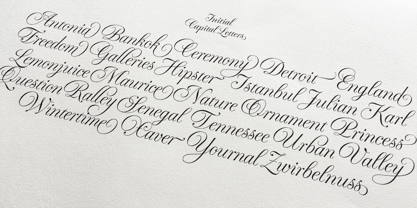 Initial
Capital Letters,
Antonia Bankok Ceremony Detroit England
Freedom Galleries Hipster Istanbul Julian Karl
Lemonjuice Maurice Nature Ornament Princess
Question Ralley Senegal Tennessee Urban Valley
Wintertime Xaver Yournal Zwirbelnuss,